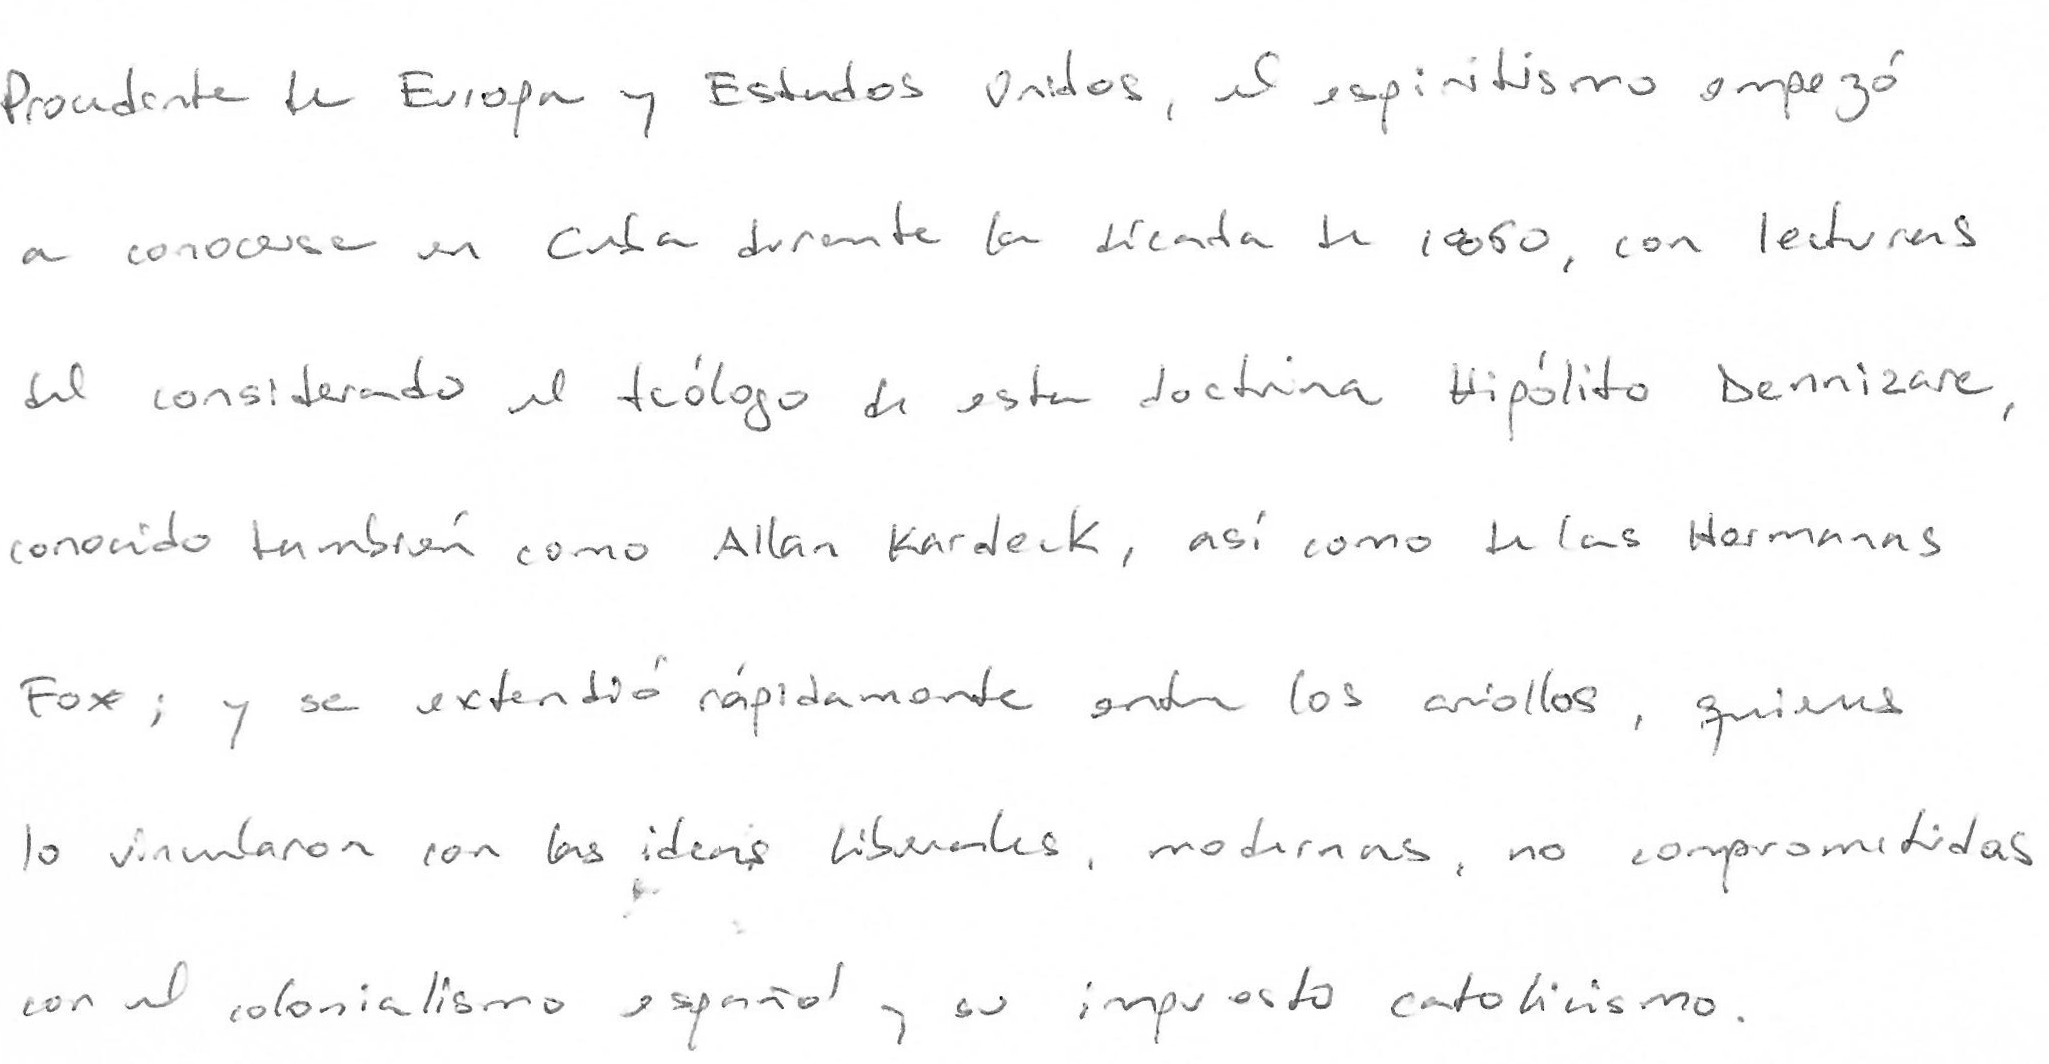 Procedente de Europa y Estados Unidos, el espiritismo empezó
a conocerse en Cuba durante la década de 1850, con lecturas
del considerado el teólogo de esta doctrina Hipólito Dennizare,
conocido también como Allan Kardeck, así como de las Hermanas
Fox; y se extendió rápidamente entre los criollos, quienes
lo vincularon con las ideas liberales, modernas, no comprometidas
con el colonialismo español y su impuesto catolicismo.